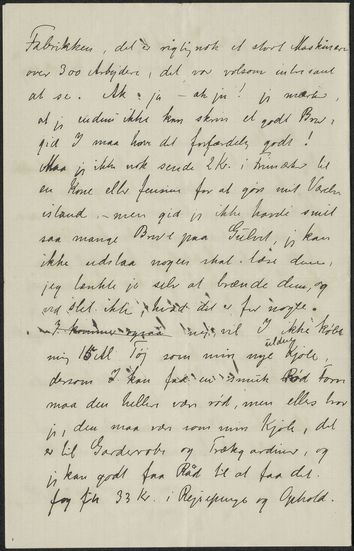 Fabrikken, det er rigtignok et stort Maskineri
over 300 Arbejdere, det var voldsom interessant
at se. Ak – ja – ak ja! jeg mærker,
at jeg endnu ikke kan skrive et godt Brev,
gid I maa have det forfærdelig godt!
Maa jeg ikke nok sende 2 Kr. i Frimærker til
en Kone eller for at gøre mit Værelse
istand, – men gid jeg ikke havde smidt
saa mange Breve paa Gulvet, jeg kan
ikke udstaa nogen skal læse dem,
jeg tænkte jo selv at brænde dem, og
ved slet ikke, hvad det er for nogle.
I kommer ogsaa vil I ikke købe
mig 15 Al Tøj som min nye uldne Kjole,
dersom I kan faa en smuk Rød Farve
maa den hellere være rød, men ellers tror
jeg, den maa være som min Kjole, det
er til Garderobe og Trækgardiner, og
jeg kan godt faa Råd til at faa det.
Jeg fik 33 Kr. i Rejsepenge og Ophold.